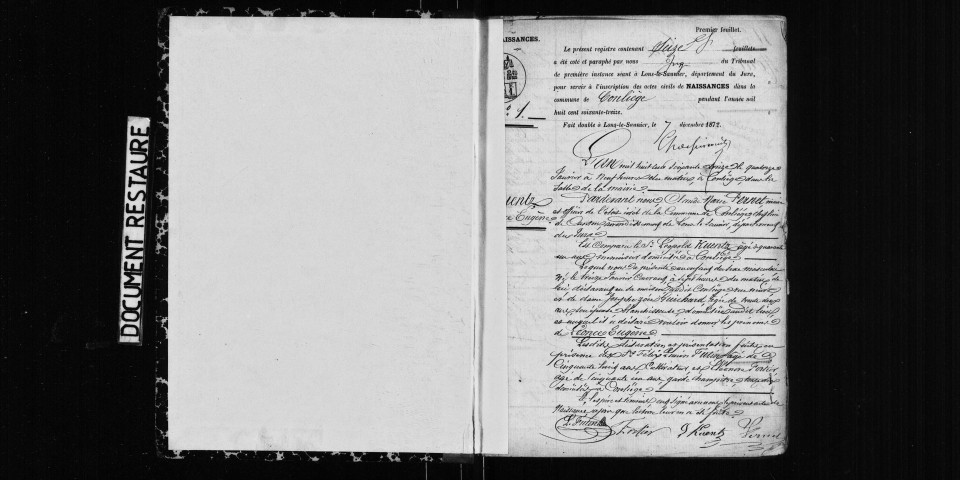 DOCUMENT RESTAURE
AISSANCES.
Premier feuillet.
Le présent registre contenant Seize feuillets
a été coté et paraphé par nous Juge du Tribunal
de première instance séant à Lons-le-Saunier, département du Jura,
pour servir à l'inscription des actes civils de NAISSANCES dans la
commune de Conliège pendant l'année mil
huit cent soixante-treize.
Fait double à Lons-le-Saunier, le 7 décembre 1872.
N° 1.
Kuentz
Eugène
L'an mil huit cent soixante treize le quatorze
Janvier à neuf heures du matin, à Conliège, dans la
salle de la mairie
Pardevant nous Vernet maire
et officier de l'état civil de la Commune de Conliège
de Canton arrondissement de Lons le Saunier, département
du Jura
Est Comparu le Sr Léopold Kuentz âgé de quarante
ans domicilié à Conliège
Lequel nous a présenté un enfant du sexe masculin
né le treize Janvier Courant à sept heures du matin, de
lui déclarant en sa maison audit Conliège
et de dame Guichard, âgée de trente deux
ans son épouse domiciliée audit lieu
et auquel il a déclaré vouloir donner les prénoms
de Léonce Eugène
Lesdites déclaration et présentation faites en
présence des Srs Félix âgé de
Cinquante huit ans Cultivateur, et
âgé de cinquante un ans garde champêtre, tous deux
domiciliés à Conliège
Et les père et témoins ont signé avec nous le présent acte de
Naissance après que lecture leur en a été faite
L. Kuentz Vernet